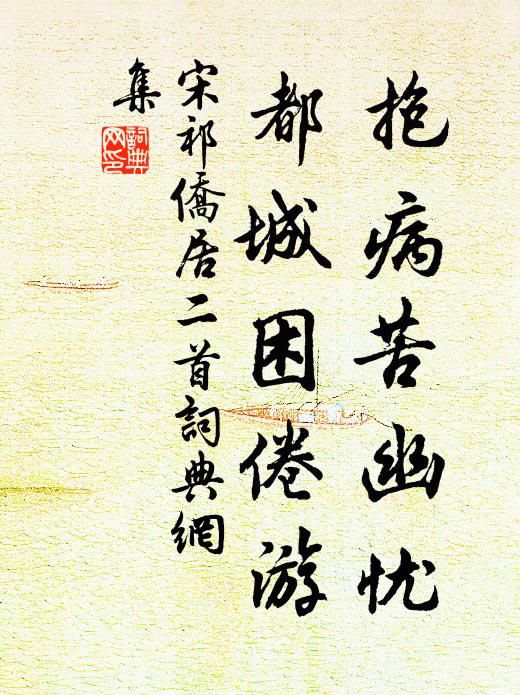 抱病苦幽忧
都城困倦游
宋祁僑居二首詞典網
集
詞典网印